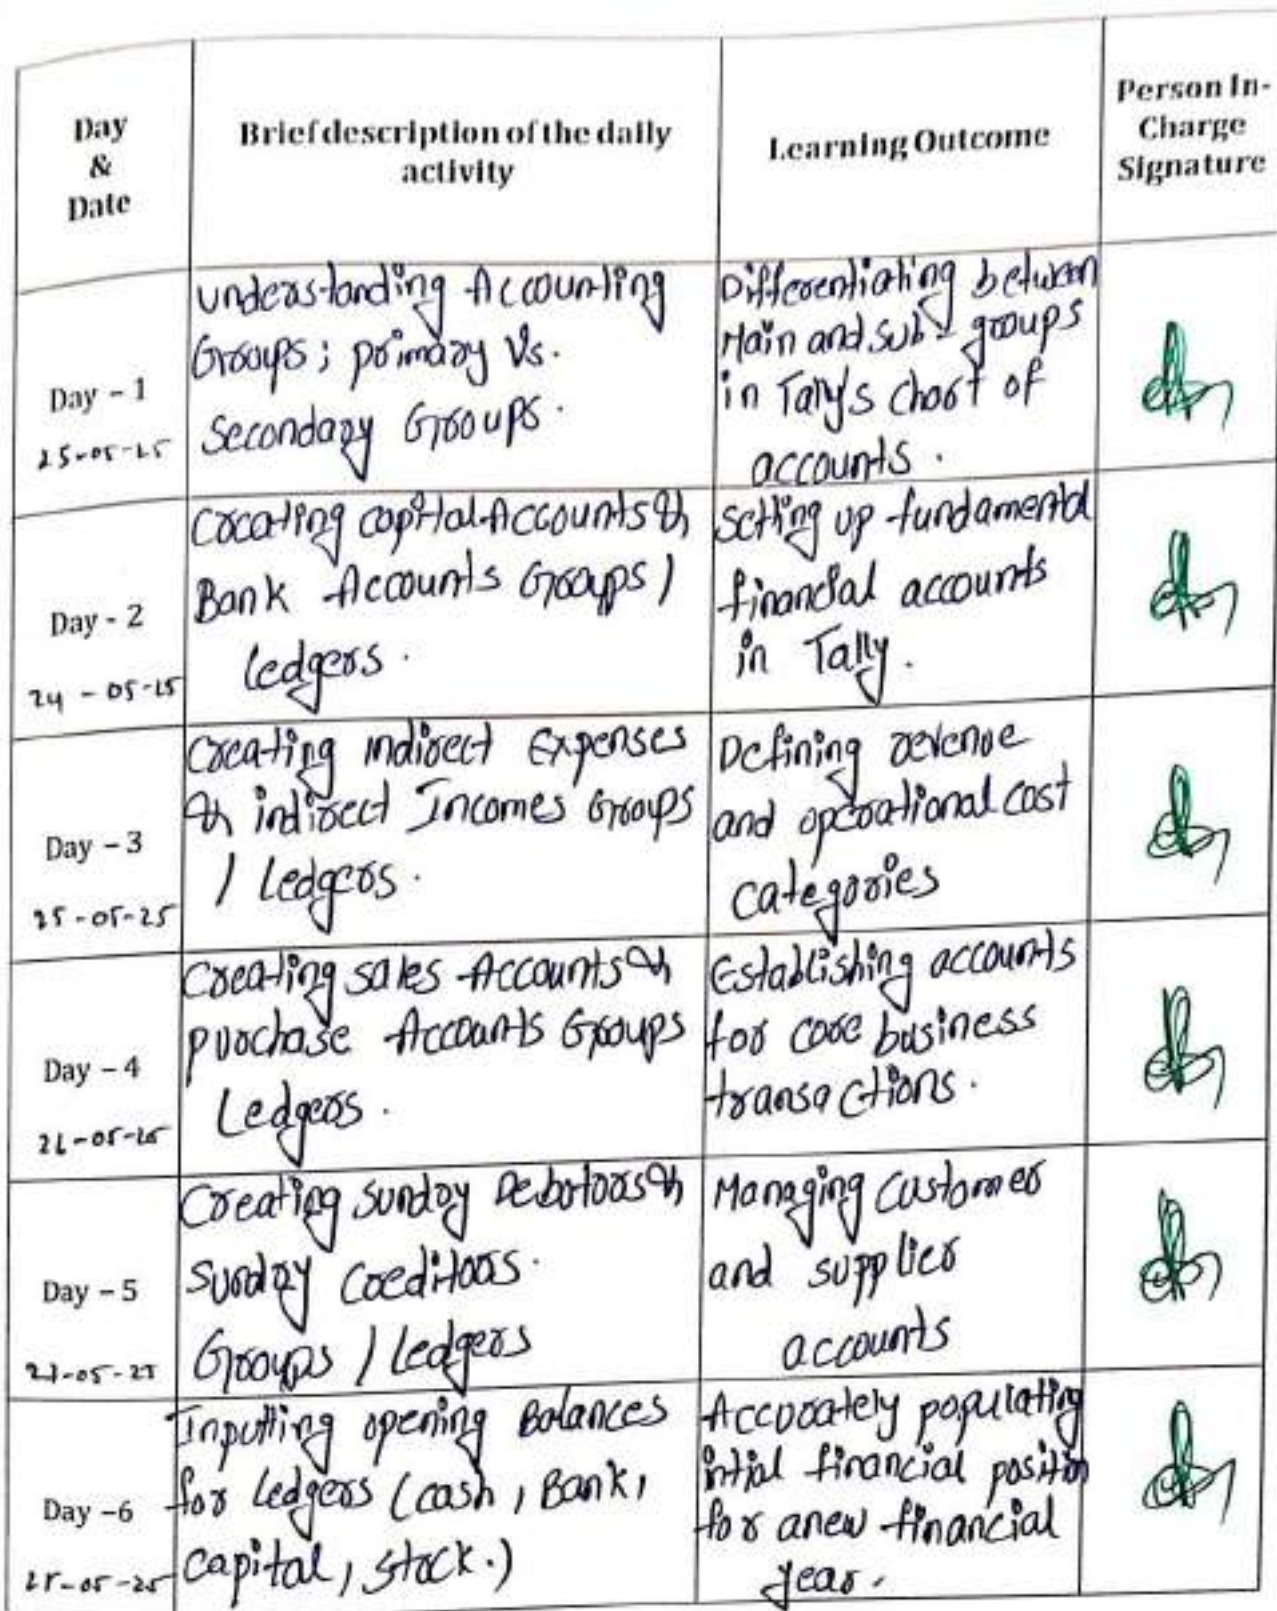 Day
&
Date
Brief description of the daily
activity
Learning Outcome
Person In-
Charge
Signature
Day - 1
25-05-25
understanding Accounting
Groups; primary Vs.
Secondary Groups.
Differentiating between
Main and sub-groups
in Tally's chart of
accounts.
Day - 2
24-05-25
Creating capital Accounts &
Bank Accounts Groups /
ledgers.
Setting up fundamental
financial accounts
in Tally.
Day - 3
25-05-25
Creating indirect Expenses
& indirect Incomes Groups
/ Ledgers.
Defining revenue
and operational cost
categories
Day - 4
26-05-25
Creating sales Accounts &
purchase Accounts Groups
Ledgers.
Establishing accounts
for core business
transactions.
Day - 5
27-05-25
Creating sundry Debotors &
sundry Creditors.
Groups / Ledgers
Managing Customer
and supplier
accounts
Day -6
Inputting opening Balances
for Ledgers (cash, Bank,
Capital, stock.)
Accurately populating
intial financial position
for anew financial
year.